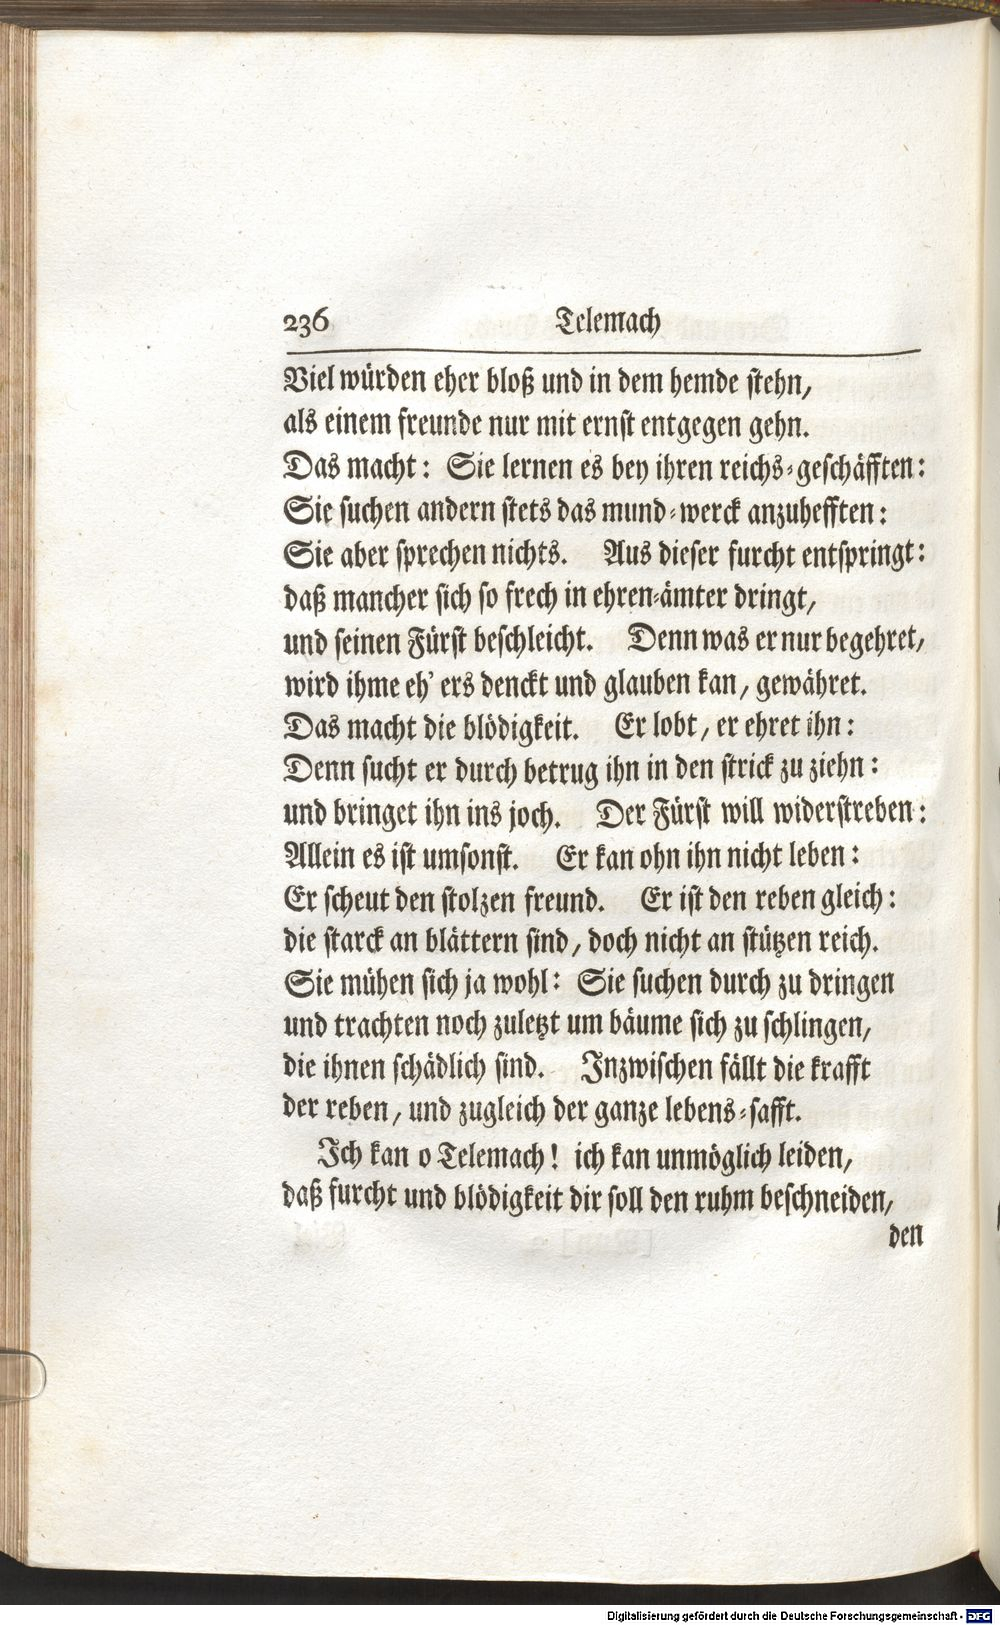 236 Telemach
Viel würden eher bloß und in dem hemde stehn,
als einem freunde nur mit ernst entgegen gehn.
Das macht: Sie lernen es bey ihren reichs-geschäfften:
Sie suchen andern stets das mund-werck anzuhefften:
Sie aber sprechen nichts. Aus dieser furcht entspringt:
daß mancher sich so frech in ehren-ämter dringt,
und seinen Fürst beschleicht. Denn was er nur begehret,
wird ihme eh' ers denckt und glauben kan, gewähret.
Das macht die blödigkeit. Er lobt, er ehret ihn:
Denn sucht er durch betrug ihn in den strick zu ziehn:
und bringet ihn ins joch. Der Fürst will widerstreben:
Allein es ist umsonst. Er kan ohn ihn nicht leben:
Er scheut den stolzen freund. Er ist den reben gleich:
die starck an blättern sind, doch nicht an stützen reich.
Sie mühen sich ja wohl: Sie suchen durch zu dringen
und trachten noch zuletzt um bäume sich zu schlingen,
die ihnen schädlich sind. Inzwischen fällt die krafft
der reben, und zugleich der ganze lebens-safft.
Ich kan o Telemach! ich kan unmöglich leiden,
daß furcht und blödigkeit dir soll den ruhm beschneiden,
den
Digitalisierung gefördert durch die Deutsche Forschungsgemeinschaft - DFG